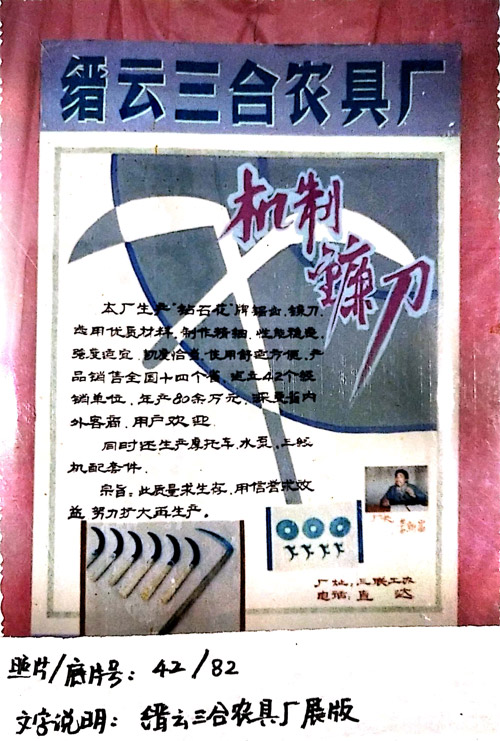 缙云三合农具厂
机制
镰刀
本厂生产"钻石花"牌锯齿镰刀,
选用优质材料,制作精细,性能稳定,
强度适宜,韧度恰当,使用舒适方便,产
品销售全国十四个省,建立42个经
销单位,年产80余万元,深受省内
外客商,用户欢迎.
同时还生产摩托车、水泵、三轮
机配套件.
宗旨:以质量求生存,用信誉求效
益,努力扩大再生产。
厂长
厂址:三联工办
电话:直达
照片/底片号:42/82
文字说明:缙云三合农具厂展版